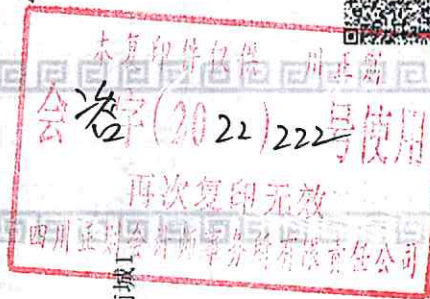 本复印件仅供 川正则
会 咨字(2022)222号使用
再次复印无效
四川正则会计师事务所有限责任公司
城1